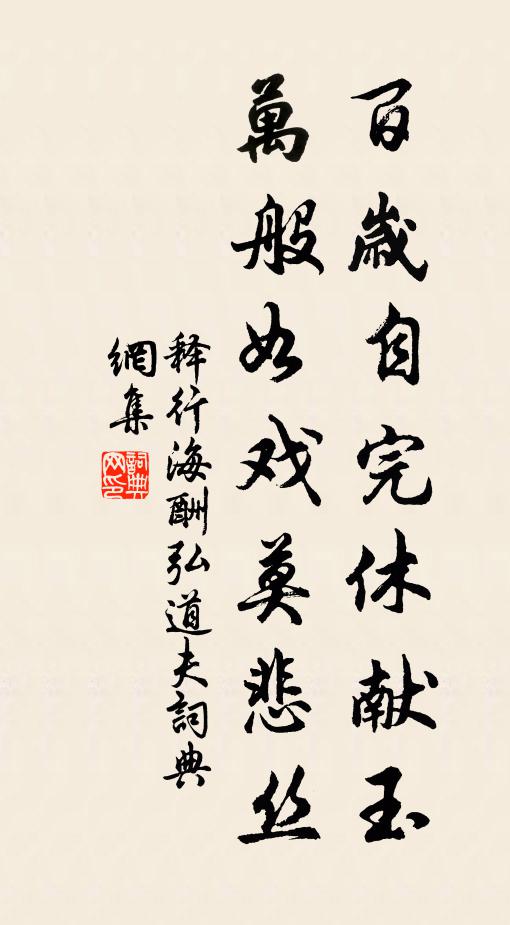 百歲自完休献玉
萬般如戏莫悲丝
释行海酬弘道夫詞典
網集
詞典网印